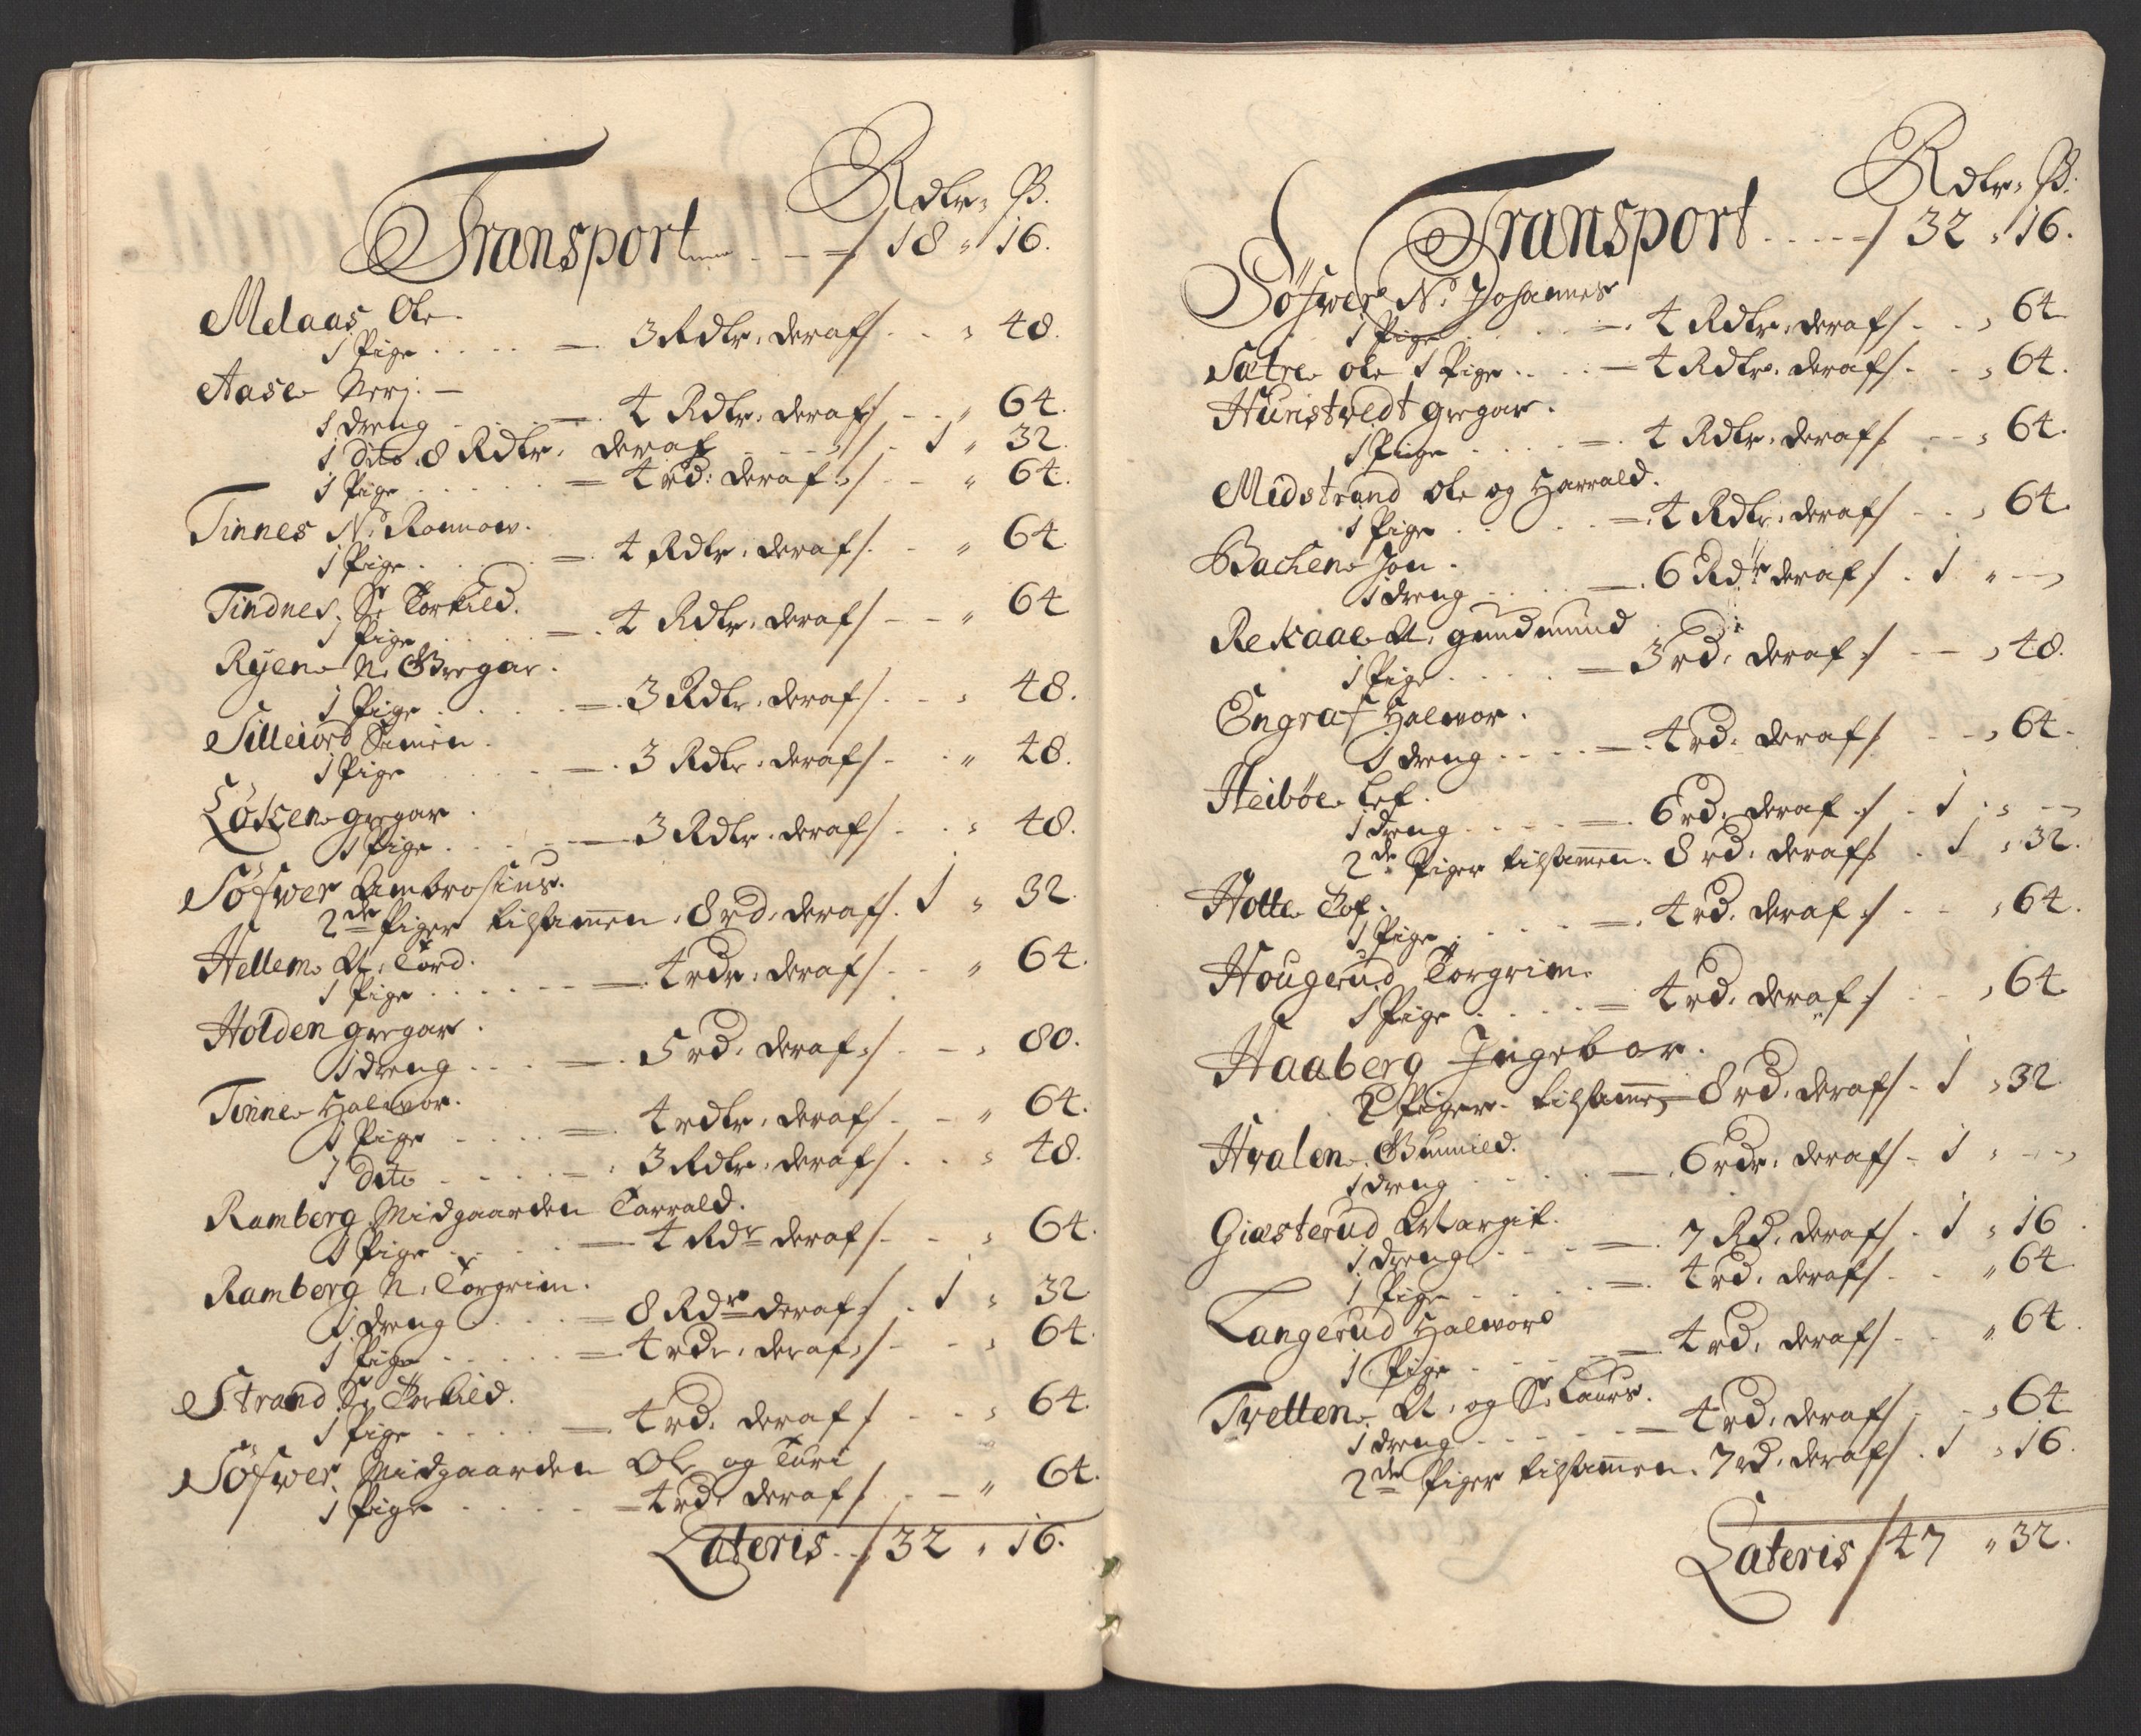 Rdlr: ß.
Transport - - - 18 " 16.
Melaas Ole.
1 Pige . . . . = . 3 Rdlr: deraf/ . . " 48.
Aase Nerj. -
1 dreng . . . = . 4 Rdlr: deraf/ - - " 64.
1 dito 8 Rdlr: deraf - - - / . 1 " 32.
1 Pige . . . . . = 4 rd: deraf :/ - - " 64.
Tinnes N: Ronnow.
1 Pige . . . . = . 4 Rdlr: deraf/ . - " 64.
Tindnes, S: Torkild.
1 Pige . . . . = . 4 Rdlr: deraf/ - - " 64
Ryen N: Gregar.
1 Pige . . . . = . 3 Rdlr: deraf/ . - " 48.
Silleiord Simen.
1 Pige . . . . = . 3 Rdlr: deraf/ - . " 48.
Löken gregar.
1 Pige . . . . = 3 Rdlr: deraf/ - . " 48.
Söfwer Ambrosius.
2de Piger tilsamen. 8 rd: deraf/. 1 " 32.
Hellem A: Tord.
1 Pige . . . . . = . 4 rdr: deraf/ - - " 64.
Holden gregar.
1 dreng . . . = . 5 rd: deraf :/ . - " 80.
Tinne Halwor.
1 Pige . . . . = . 4 rdlr: deraf/ - - " 64.
1 dito . . . . = . 3 Rdlr: deraf/ . . " 48.
Ramberg Midgaarden Tarrald.
1 Pige . . . . = 4 Rdr deraf/ . - " 64.
Ramberg N: Torgrim.
1 dreng . . . = 8 Rdr deraf/ . 1 " 32
1 Pige . . . . . = 4 rdr: deraf :/ - - " 64.
Strand S: Torkild.
1 Pige . . . . = 4 rd: deraf / . . " 64.
Söfwer Midgaarden Ole og Turi
1 Pige . . . . = 4 rd: deraf/ . - " 64.
Lateris . . / 32 " 16.
Rdlr: ß.
Transport . . . - / 32 " 16.
Söfwer N: Johannes
1 Pige . . . . = . 4 Rdlr: deraf/ - . " 64
Sätre ole 1 Pige . . . = 4 Rdlr: deraf/ - - " 64.
Huristvedt gregar.
1 Piige . . . . = . 4 Rdlr: deraf/ - - " 64.
Midstrand ole og Harrald.
1 Pige . . . . = . 4 Rdlr: deraf/ - . " 64.
Bachen Jon.
1 dreng . . . . = . 6 Rdr deraf / . 1 " -
Rekaae A: gundmund
1 Pige . . . . = 3 rd: deraf :/ - - " 48.
Engraf Halwor.
1 dreng . . . = . 4 rd: deraf/ - - " 64.
Heiböe Lef.
1 dreng . . . . = . 6 rd: deraf :/ . 1 . " -
2de Piger tilsamen. 8 rd: deraf/ . 1 " 32.
Holte Tof.
1 Pige . . . . = . 4 rd: deraf :/ - - " 64.
Hougerud Torgrim.
1 Pige . . . . = 4 rd: deraf :/ . - " 64.
Haaberg Ingebor.
2 Piger tilsamen 8 rd: deraf/ - 1 " 32.
Hvalen Gunnild.
1 dreng . . . . = . 6 rdr: deraf/ - 1 " -
Giæsterud Margit.
1 dreng . . . = . 7 Rd: deraf/ . 1 " 16.
1 Pige . . . . = . 4 rd: deraf/ - . " 64.
Langerud Halword
1 Pige . . . . = 4 rd: deraf/ - . " 64.
Tvetten A: og S: Laurs.
1 dreng . . . . = 4 rd: deraf/ . - " 64
2de Piger tilsamen. 7 rd: deraf/ . 1 " 16.
Lateris / 47 " 32.